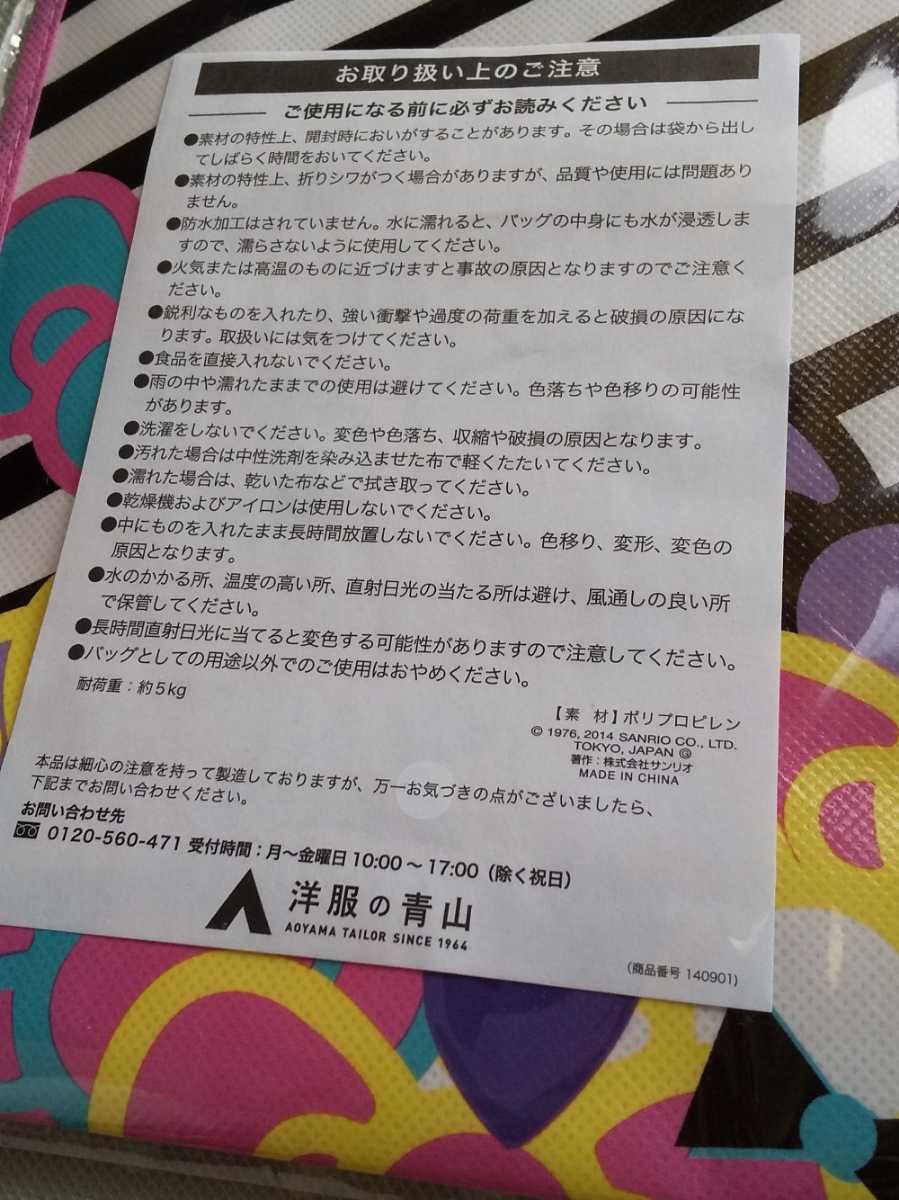 お取り扱い上のご注意
ご使用になる前に必ずお読みください
●素材の特性上、開封時においがすることがあります。その場合は袋から出し
てしばらく時間をおいてください。
●素材の特性上、折りシワがつく場合がありますが、品質や使用には問題あり
ません。
●防水加工はされていません。水に濡れると、バッグの中身にも水が浸透しま
すので、濡らさないように使用してください。
●火気または高温のものに近づけますと事故の原因となりますのでご注意く
ださい。
●鋭利なものを入れたり、強い衝撃や過度の荷重を加えると破損の原因にな
ります。取扱いには気をつけてください。
●食品を直接入れないでください。
●雨の中や濡れたままでの使用は避けてください。色落ちや色移りの可能性
があります。
●洗濯をしないでください。変色や色落ち、収縮や破損の原因となります。
●汚れた場合は中性洗剤を染み込ませた布で軽くたたいてください。
●濡れた場合は、乾いた布などで拭き取ってください。
●乾燥機およびアイロンは使用しないでください。
●中にものを入れたまま長時間放置しないでください。色移り、変形、変色の
原因となります。
●水のかかる所、温度の高い所、直射日光の当たる所は避け、風通しの良い所
で保管してください。
●長時間直射日光に当てると変色する可能性がありますので注意してください。
●バッグとしての用途以外でのご使用はおやめください。
耐荷重：約5kg
【素 材】ポリプロピレン
© 1976, 2014 SANRIO CO., LTD.
TOKYO, JAPAN Ⓖ
著作：株式会社サンリオ
MADE IN CHINA
本品は細心の注意を持って製造しておりますが、万一お気づきの点がございましたら、
下記までお問い合わせください。
お問い合わせ先
0120-560-471 受付時間：月～金曜日 10:00 ～ 17:00（除く祝日）
洋服の青山
AOYAMA TAILOR SINCE 1964
（商品番号 140901）